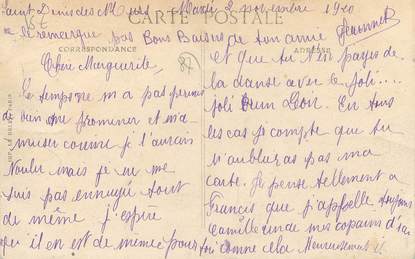 Saint Denis des M Mardi 2 novembre 1920
CARTE POSTALE
remarque pas Bons Baisers de ton amie Jeannette
CORRESPONDANCE
ADRESSE
87
Chère Marguerite,
Le temps ne m a pas permis
de me promener et m'a
muser comme je l'aurais
Voulu mais je ne me
suis pas ennuyé tout
de même j'espère
qu il en est de meme pour toi
et que tu t'en payes de
la danse avec le Joli...
Joli brun Loir. En tous
les cas je compte que tu
n'aubleras pas ma
carte. Je pense tellement a
Francis que j'appelle toujours
Camille un de mes copains d'ici
comme cela Heureusement